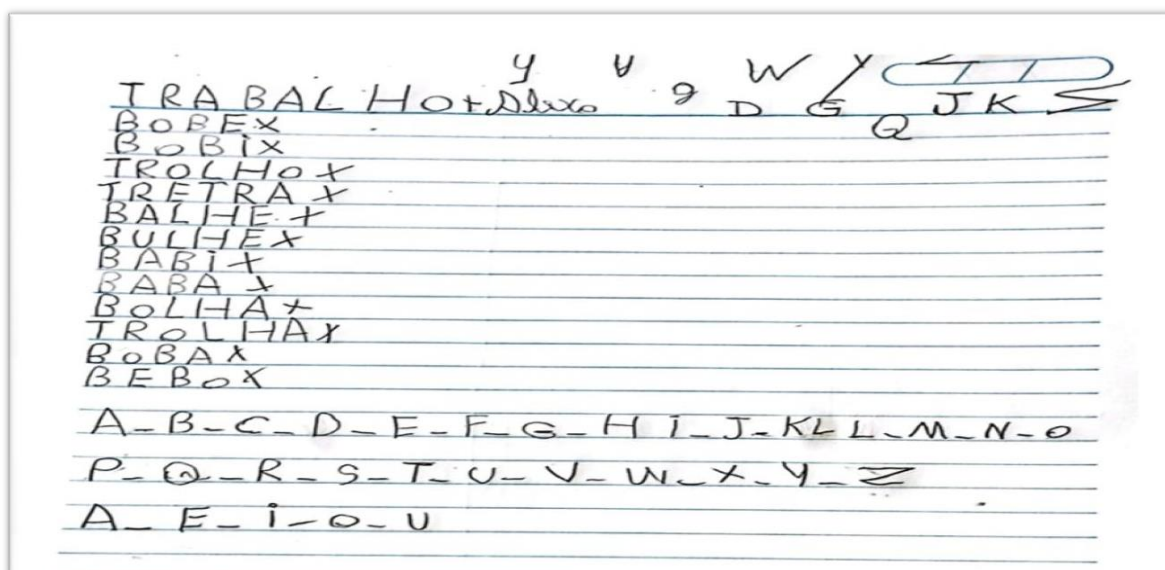 y V W Y
TRABALHO + 9 D G Q J K
BOBEX
BOBiX
TROLHOX
TRETRAX
BALHE.X
BULHEX
BABiX
BABA X
BOLHAX
TROLHAX
BOBAX
BEBOX
A-B-C-D-E-F-G-H i-J-KL L-M-N-O
P-Q-R-S-T-U-V-W-X-Y-Z
A-E-i-O-U